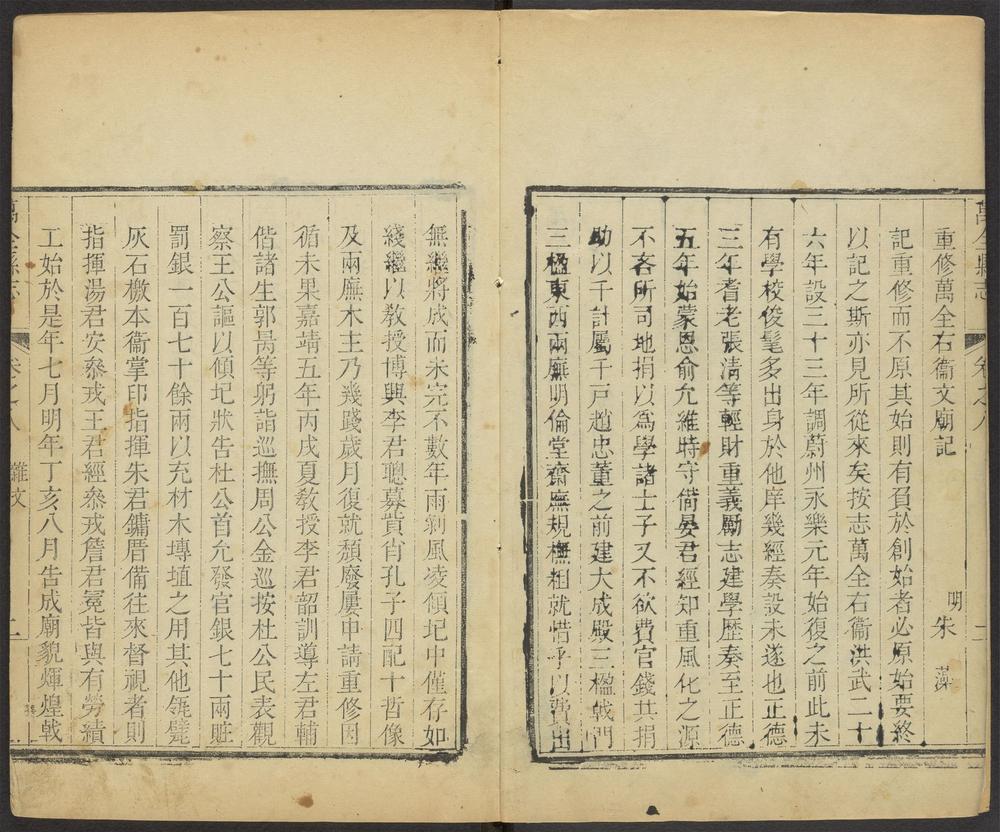 萬全縣志
卷之八
重修萬全右衞文廟記
明朱藻
記重修而不原其始則有負於創始者必原始要終
以記之斯亦見所從來矣按志萬全右衞洪武二十
六年設三十三年調蔚州永樂元年始復之前此未
有學校俊髦多出身於他庠幾經奏設未遂也正德
三年耆老張淸等輕財重義勵志建學歷奏至正德
五年始蒙恩俞允維時守備晏君經知重風化之源
不吝所司地捐以爲學諸士子又不欲費官錢共捐
助以千計屬千戸趙忠董之前建大成殿三楹戟門
三楹東西兩廡明倫堂齋廡規橅粗就惜乎以費出
無繼將成而未完不數年雨剥風凌傾圮中僅存如
綫繼以敎授博興李君聰募貲肖孔子四配十哲像
及兩廡木主乃幾踐歲月復就頽廢屢申請重修因
循未果嘉靖五年丙戌夏敎授李君韶訓導左君輔
偕諸生郭昺等躬詣巡撫周公金巡按杜公民表觀
察王公謳以傾圮狀吿杜公首允發官銀七十兩贓
罰銀一百七十餘兩以充材木塼埴之用其他瓴甓
灰石檄本衞掌印指揮朱君鏞厝備往來督視者則
指揮湯君安叅戎王君經叅戎詹君冕皆與有勞績
工始於是年七月明年丁亥八月吿成廟貌輝煌戟
萬全縣志
卷之八
雜文
二